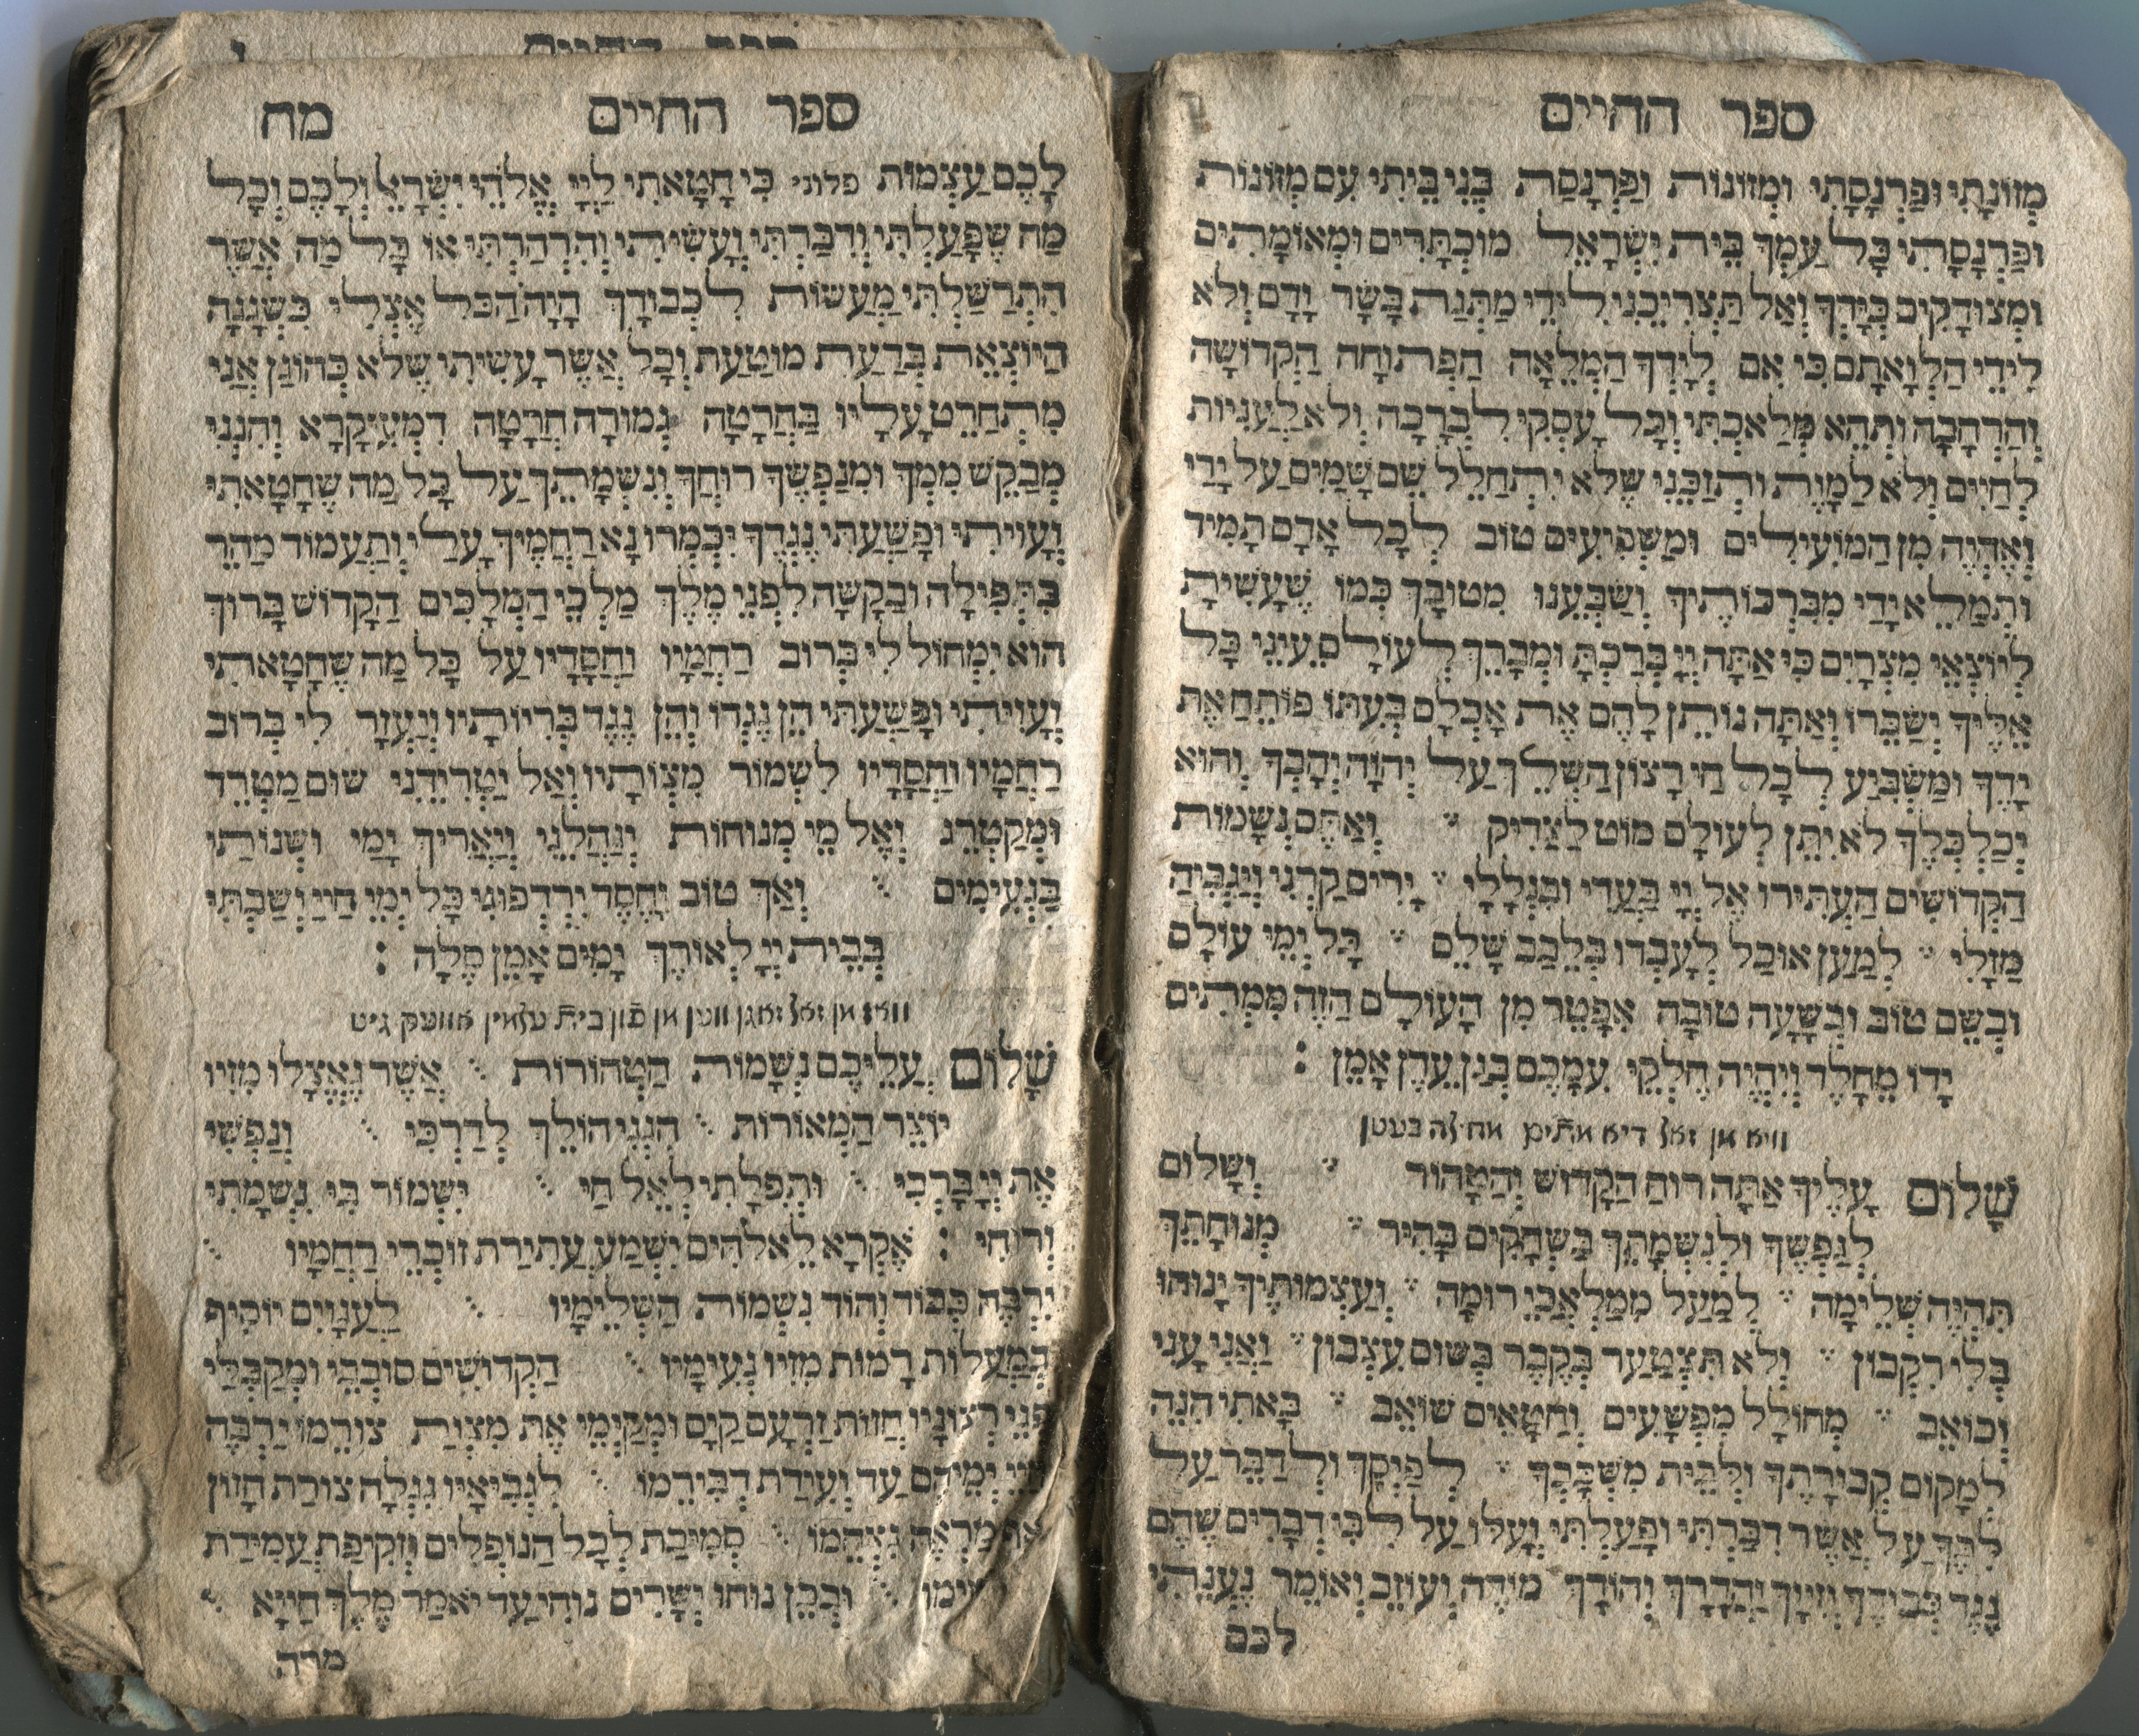 ספר החיים
מְזוֹנָתִי וּפַרְנָסָתִי וּמְזוֹנוֹת וּפַרְנָסַת בְּנֵי בֵיתִי עִם מְזוֹנוֹת
וּפַרְנָסָתִי כָּל עַמְּךָ בֵּית יִשְׂרָאֵל מוּכְתָּרִים וּמְאוּמָתִים
וּמְצוּדָקִים בְּיָדְךָ וְאַל תַּצְרִיכֵנִי לִידֵי מַתְּנַת בָּשָׂר וָדָם וְלֹא
לִידֵי הַלְוָאָתָם כִּי אִם לְיָדְךָ הַמְלֵאָה הַפְּתוּחָה הַקְּדוֹשָׁה
וְהָרְחָבָה וּתְהֵא מְלַאכְתִּי וְכָל עֲסָקַי לִבְרָכָה וְלֹא לַעֲנִיּוּת
לְחַיִּים וְלֹא לַמָּוֶת וּתְזַכֵּנִי שֶׁלֹּא יִתְחַלֵּל שֵׁם שָׁמַיִם עַל יָדַי
וְאֶהְיֶה מִן הַמּוֹעִילִים וּמַשְׁפִּיעִים טוֹב לְכָל אָדָם תָּמִיד
וּתְמַלֵּא יָדַי מִבִּרְכוֹתֶיךָ וְשַׂבְּעֵנוּ מִטּוּבֶךָ כְּמוֹ שֶׁעָשִׂיתָ
לְיוֹצְאֵי מִצְרַיִם כִּי אַתָּה יְיָ בֵּרַכְתָּ וּמְבָרֵךְ לְעוֹלָם עֵינֵי כָל
אֵלֶיךָ יְשַׂבֵּרוּ וְאַתָּה נוֹתֵן לָהֶם אֶת אָכְלָם בְּעִתּוֹ פּוֹתֵחַ אֶת
יָדֶךָ וּמַשְׂבִּיעַ לְכָל חַי רָצוֹן הַשְׁלֵךְ עַל יְהוָה יְהָבְךָ וְהוּא
יְכַלְכְּלֶךָ לֹא יִתֵּן לְעוֹלָם מוֹט לַצַּדִּיק וְאַתֶּם נְשָׁמוֹת
הַקְּדוֹשִׁים הַעְתִּירוּ אֶל יְיָ בַּעֲדִי וּבִגְלָלִי יָרִים קַרְנִי וְיַגְבִּיהַּ
מַזָּלִי לְמַעַן אוּכַל לְעָבְדוֹ בְּלֵבָב שָׁלֵם כָּל יְמֵי עוֹלָם
וּבְשֵׁם טוֹב וּבְשָׁעָה טוֹבָה אֶפָּטֵר מִן הָעוֹלָם הַזֶּה מִמְּתִים
יָדוֹ מֵחָלֶד וְיִהְיֶה חֶלְקִי עִמָּכֶם בְּגַן עֵדֶן אָמֵן :
וויא מן זאל דיא מתים מחילה בעטן
שָׁלוֹם עָלֶיךָ אַתָּה רוּחַ הַקָּדוֹשׁ וְהַטָּהוֹר וְשָׁלוֹם
לְנַפְשֶׁךָ וּלְנִשְׁמָתֶךָ בַּשְּׁחָקִים בָּהִיר מְנוּחָתֶךָ
תִּהְיֶה שְׁלֵימָה לְמַעַל מִמַּלְאֲכֵי רוּמָה וְעַצְמוֹתֶיךָ יָנוּחוּ
בְּלִי רִקָּבוֹן וְלֹא תִּצְטַעֵר בַּקֶּבֶר בְּשׁוּם עִצָּבוֹן וַאֲנִי עָנִי
וְכוֹאֵב מְחוֹלָל מִפְּשָׁעִים וְחַטָּאִים שׁוֹאֵב בָּאתִי הִנֵּה
לִמְקוֹם קְבוּרָתֶךָ וּלְבֵית מִשְׁכָּבְךָ לְפַיֶּסְךָ וּלְדַבֵּר עַל
לִבֶּךָ עַל אֲשֶׁר דִּבַּרְתִּי וּפָעַלְתִּי וְעָלוּ עַל לִבִּי דְּבָרִים שֶׁהֵם
נֶגֶד כְּבוֹדֶךָ וְזִיוֶךָ וַהֲדָרֶךָ וְהוֹדֶךָ מוֹדֶה וְעוֹזֵב וְאוֹמֵר נַעֲנֵיתִי
לכם
ספר החיים מח
לָכֶם עַצְמוֹת פלוני כִּי חָטָאתִי לַיְיָ אֱלֹהֵי יִשְׂרָאֵל וְלָכֶם וְכָל
מַה שֶּׁפָּעַלְתִּי וְדִבַּרְתִּי וְעָשִׂיתִי וְהִרְהַרְתִּי אוֹ כָּל מַה אֲשֶׁר
הִתְרַשַּׁלְתִּי מַעֲשׂוֹת לִכְבוֹדֶךָ הָיָה הַכֹּל אֶצְלִי כִּשְׁגָגָה
הַיּוֹצֵאת בְּדַעַת מוּטַעַת וְכָל אֲשֶׁר עָשִׂיתִי שֶׁלֹּא כַּהוֹגַן אֲנִי
מִתְחָרֵט עָלָיו בַּחֲרָטָה גְמוּרָה חֲרָטָה דְמֵעִיקָּרָא וְהִנְנִי
מְבַקֵּשׁ מִמְּךָ וּמִנַּפְשֶׁךָ רוּחֲךָ וְנִשְׁמָתֶךָ עַל כָּל מַה שֶּׁחָטָאתִי
וְעָוִיתִי וּפָשַׁעְתִּי נֶגְדֶּךָ יִכְמְרוּ נָא רַחֲמֶיךָ עָלַי וְתַעֲמוֹד מַהֵר
בִּתְפִילָּה וּבַקָּשָׁה לִפְנֵי מֶלֶךְ מַלְכֵי הַמְּלָכִים הַקָּדוֹשׁ בָּרוּךְ
הוּא יִמְחוֹל לִי בְּרוֹב רַחֲמָיו וַחֲסָדָיו עַל כָּל מַה שֶּׁחָטָאתִי
וְעָוִיתִי וּפָשַׁעְתִּי הֵן נֶגְדּוֹ וְהֵן נֶגֶד בְּרִיּוֹתָיו וְיַעֲזָר לִי בְּרוֹב
רַחֲמָיו וַחֲסָדָיו לִשְׁמוֹר מִצְוֹתָיו וְאַל יַטְרִידֵנִי שׁוּם מַטְרֵד
וּמְקַטְרֵג וְאֶל מֵי מְנוּחוֹת יְנַהֲלֵנִי וְיַאֲרִיךְ יָמַי וּשְׁנוֹתַי
בַּנְּעִימִים וְאַךְ טוֹב וָחֶסֶד יִרְדְּפוּנִי כָּל יְמֵי חַיַּי וְשַׁבְתִּי
בְּבֵית יְיָ לְאוֹרֶךְ יָמִים אָמֵן סֶלָה :
וואז מן זאל זאגן ווען מן פון בית עלמין אוועק גיט
שָׁלוֹם עֲלֵיכֶם נְשָׁמוֹת הַטְּהוֹרוֹת אֲשֶׁר נֶאֶצְלוּ מִזִּיו
יוֹצֵר הַמְּאוֹרוֹת הִנְנִי הוֹלֵךְ לְדַרְכִּי וְנַפְשִׁי
אֶת יְיָ בָּרְכִי וּתְפִלָּתִי לְאֵל חַי יִשְׁמוֹר בִּי נִשְׁמָתִי
וְרוּחִי : אֶקְרָא לֵאלֹהִים יִשְׁמַע עֲתִירַת זוֹכְרֵי רַחֲמָיו
יִרְבֶּה כְּבוֹד וְהוֹד נִשְׁמוֹת הַשְּׁלֵימָיו לַעֲנָוִים יוֹסִיף
בְּמַעֲלוֹת רָמוֹת מִזִּיו נְעִימָיו הַקְּדוֹשִׁים סוֹבְבֵי וּמְקַבְּלֵי
פְּנֵי רְצוֹנָיו חֲזוֹת זַרְעָם קַיָּם וּמְקַיְּמֵי אֶת מִצְוַת צוּרֵמוֹ יַרְבֶּה
יְמֵיהֶם עַד וְעִידַת דְּבִירֵמוֹ לִנְבִיאָיו נִגְלָה צוּרַת חָזוֹן
מַרְאֶה סְמִיכַת לְכָל הַנּוֹפְלִים וּזְקִיפַת עֲמִידַת
וּבְכֵן נוּחוּ יְשָׁרִים נוּחִי עַד יֹאמַר מֶלֶךְ חַיָּיא
מרה